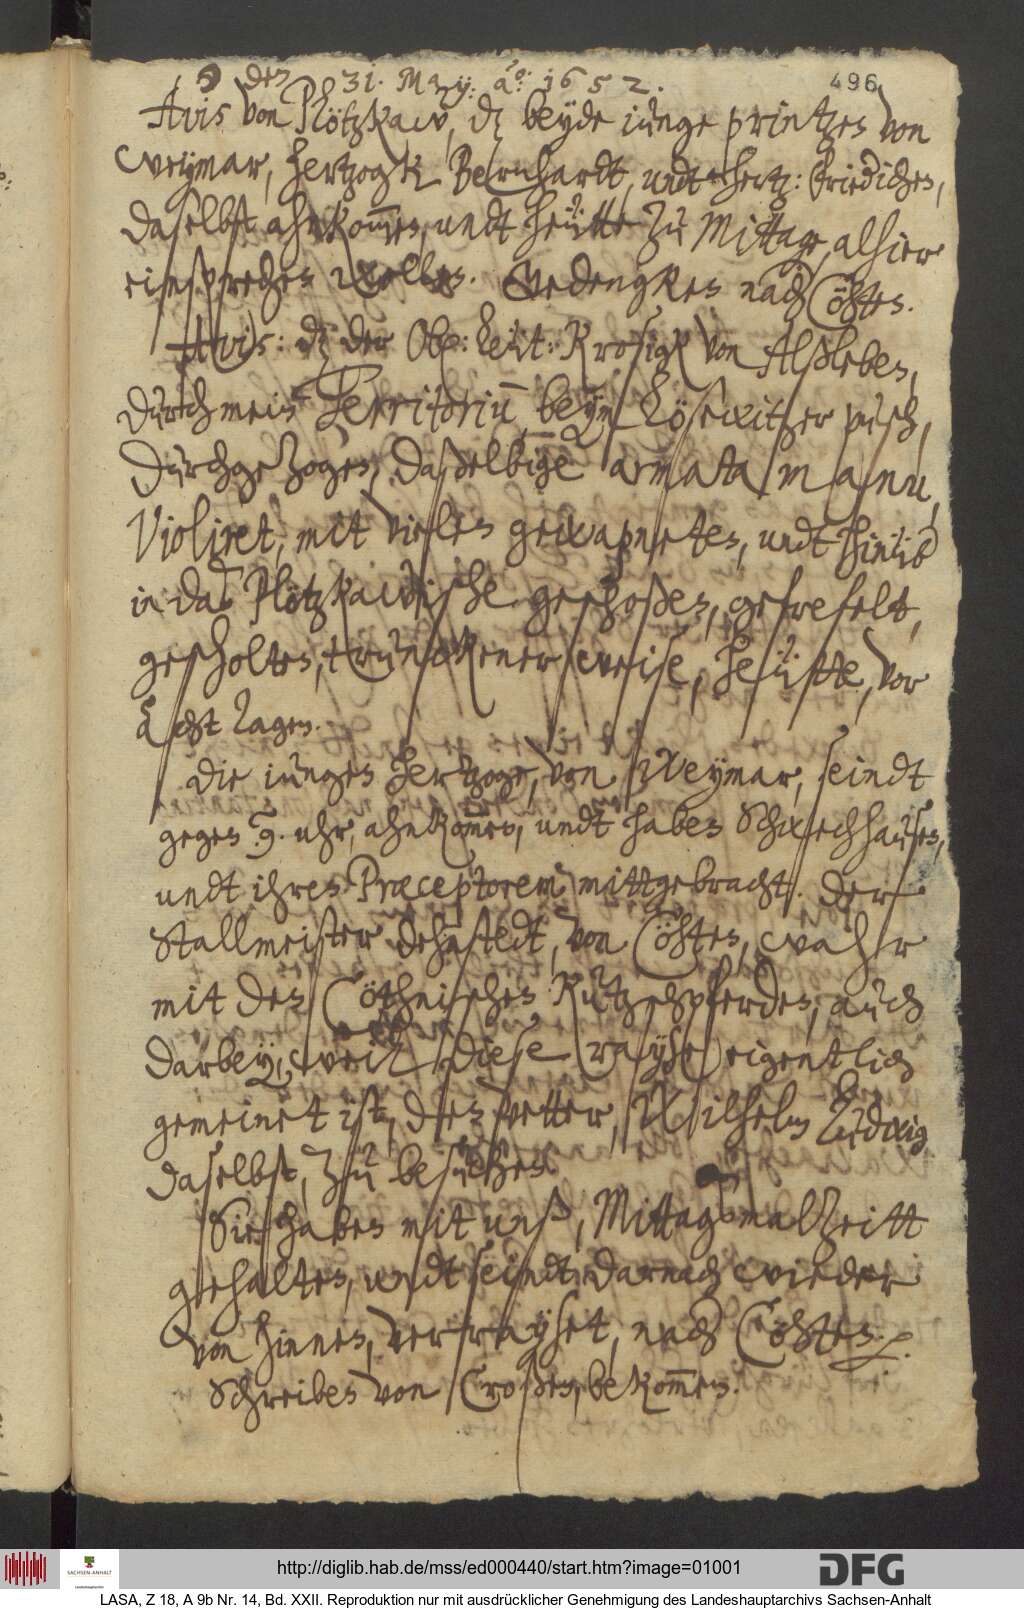 den 31. May: ao: 1652.
496
Avis von Plötzkaw, dz beyde iunge printzen von
Weymar, hertzogk Bernhardt, undt hertz: Friedichen,
daselbst ahnkom̅en, undt heütte zu Mittage, alhier
einsprechen wollen. Gedengken nach Cöhten.
Avis: dz der Ob: Leüt: Krosigk von Alßleben,
durch mein Territorium̅, beym Lösewitzer pusch,
durchgezogen, daßelbige armata manu,
violiret, mit vielen gewapneten, undt hinüb
in das Plötzkawische geschoßen, gefrefelt,
gescholten, trunckener weise, heütte, vor
acht Tagen.
Die iungen hertzoge, von Weymar, seindt
gegen 9. uhr, ahnkom̅en, undt haben Schwechhausen,
undt ihren Præceptorem mittgebracht. Der
Stallmeister Dehnstedt, von Cöhten, wahr
mit den Cöthnischen Kutzschpferden, auch
darbey, weil diese rayse eigentlich
gemeinet ist, den vetter, Wilhelm Ludwig
daselbst, zu besuchen.
Sie haben mit unß, Mittagsmalzeitt
gehalten, undt seindt darnach wieder
von hinnen, verrayset, nach Cöhten.
Schreiben von Croßen, bekom̅en.
http://diglib.hab.de/mss/ed000440/start.htm?image=01001
DFG
SACHSEN-ANHALT
LASA, Z 18, A 9b Nr. 14, Bd. XXII. Reproduktion nur mit ausdrücklicher Genehmigung des Landeshauptarchivs Sachsen-Anhalt